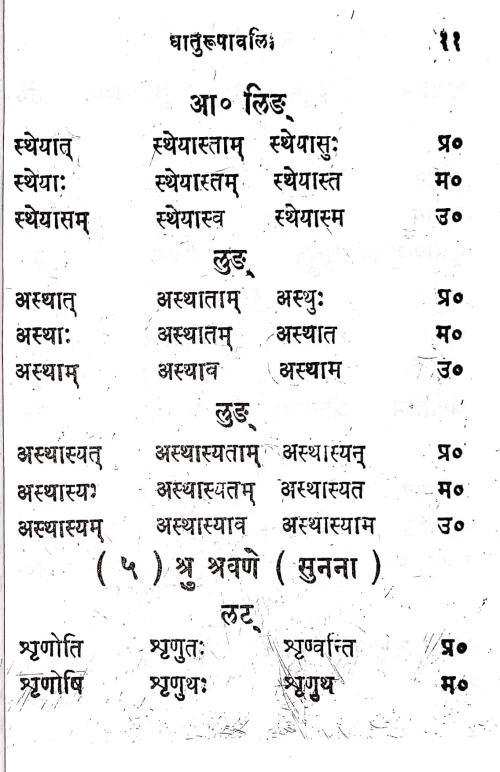 धातुरूपावलिः ११
आ० लिङ्
स्थेयात् स्थेयास्ताम् स्थेयासुः प्र०
स्थेयाः स्थेयास्तम् स्थेयास्त म०
स्थेयासम् स्थेयास्व स्थेयास्म उ०
लुङ्
अस्थात् अस्थाताम् अस्थुः प्र०
अस्थाः अस्थातम् अस्थात म०
अस्थाम् अस्थाव अस्थाम उ०
लुङ्
अस्थास्यत् अस्थास्यताम् अस्थास्यन् प्र०
अस्थास्यः अस्थास्यतम् अस्थास्यत म०
अस्थास्यम् अस्थास्याव अस्थास्याम उ०
( ५ ) श्रु श्रवणे ( सुनना )
लट्
शृणोति शृणुतः शृण्वन्ति प्र०
शृणोषि शृणुथः शृणुथ म०